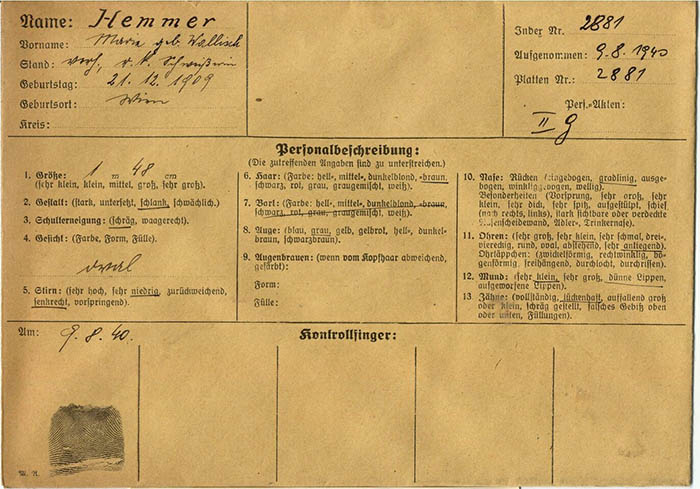 Name: Hemmer
Vorname: Marie geb. Wallisch
Stand: verh., r. k. Schweißerin
Geburtstag: 21. 12. 1909
Geburtsort: Wien
Kreis:
Index Nr. 2881
Aufgenommen: 9. 8. 1940
Platten Nr.: 2881
Pers.-Akten:
II g
Personalbeschreibung:
(Die zutreffenden Angaben sind zu unterstreichen.)
1. Größe: 1 m 48 cm
(sehr klein, klein, mittel, groß, sehr groß).
2. Gestalt: (stark, untersetzt, schlank, schwächlich).
3. Schulterneigung: (schräg, waagerecht).
4. Gesicht: (Farbe, Form, Fülle).
oval
5. Stirn: (sehr hoch, sehr niedrig, zurückweichend,
senkrecht, vorspringend).
6. Haar: (Farbe: hell-, mittel-, dunkelblond, -braun,
schwarz, rot, grau, graugemischt, weiß).
7. Bart: (Farbe: hell-, mittel-, dunkelblond, -braun,
schwarz, rot, grau, graugemischt, weiß).
8. Auge: (blau, grau, gelb, gelbrot, hell-, dunkel-
braun, schwarzbraun).
9. Augenbrauen: (wenn vom Kopfhaar abweichend,
gefärbt):
Form:
Fülle:
10. Nase: Rücken (eingebogen, gradlinig, ausge-
bogen, winklig gebogen, wellig).
Besonderheiten (Vorsprung, sehr groß, sehr
klein, sehr dick, sehr spitz, aufgestülpt, schief
(nach rechts, links), stark sichtbare oder verdeckte
Nasenscheidewand, Adler-, Trinkernase).
11. Ohren: (sehr groß, sehr klein, sehr schmal, drei-,
viereckig, rund, oval, abstehend, sehr anliegend).
Ohrläppchen: (zwickelförmig, rechtwinklig, bo-
genförmig, freihängend, durchlocht, durchrissen).
12. Mund: (sehr klein, sehr groß, dünne Lippen,
aufgeworfene Lippen).
13. Zähne: (vollständig, lückenhaft, auffallend groß
oder klein, schräg gestellt, falsches Gebiß oben
oder unten, Füllungen).
Am: 9. 8. 40.
Kontrollfinger: